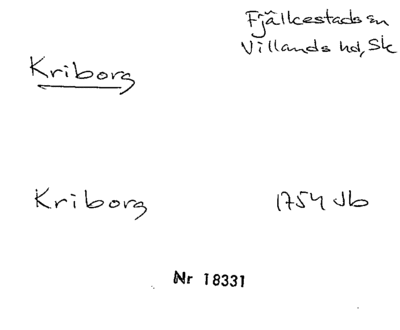 Fjälkestads sn
Villands hd, Sk
Kriborg
Kriborg 1754 Jb
Nr 18331